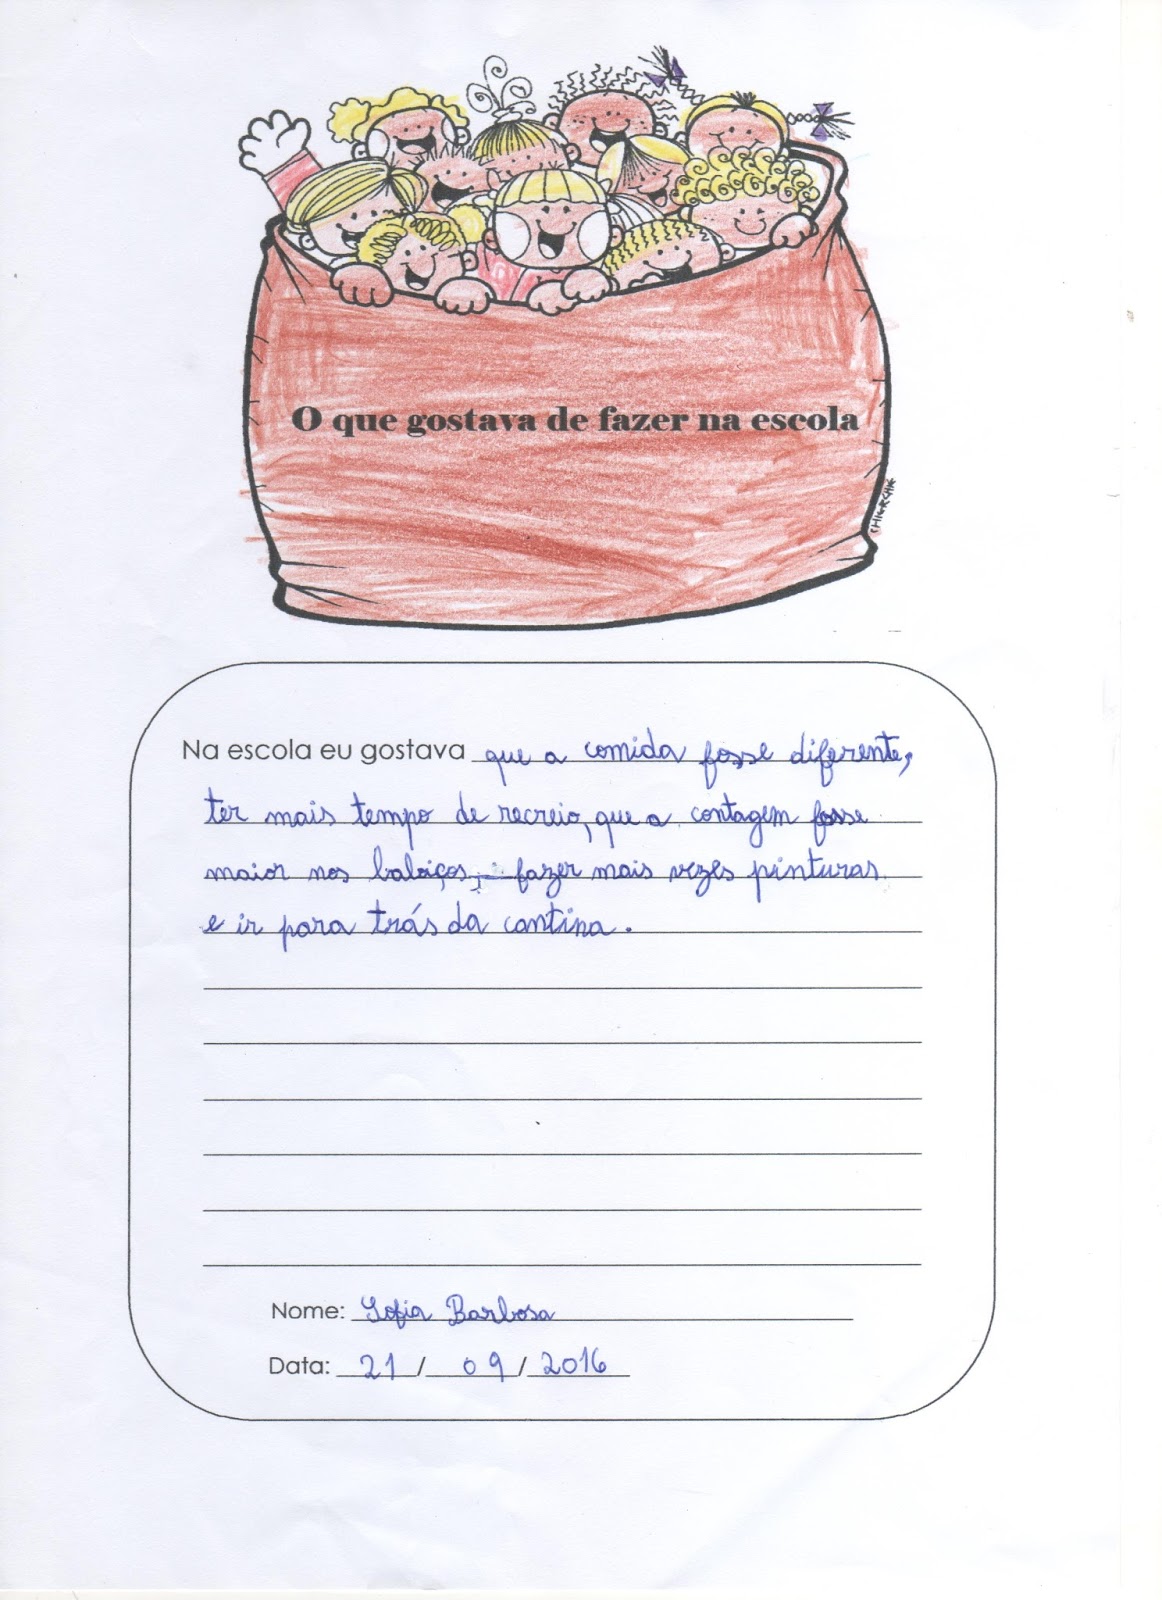 O que gostava de fazer na escola
CHIERCHIE
Na escola eu gostava que a comida fosse diferente,
ter mais tempo de recreio, que a contagem fosse
maior nos baloiços, fazer mais vezes pinturas
e ir para trás da cantina.
Nome: Sofia Barbosa
Data: 21/09/2016